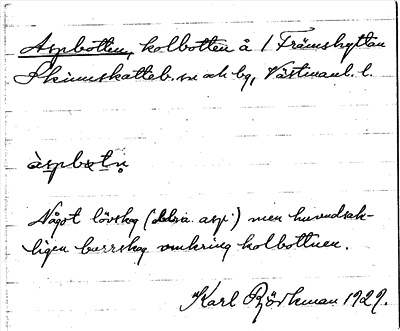 Aspbotten, kolbotten å 1 Främshyttan
Skinnskatteb. sn och bg, Västmanl. l.
àspbɷtņ
Något lövskog (bl.a. asp.) men huvudsak-
ligen barrskog omkring kolbottnen.
Karl Björkman 1929.